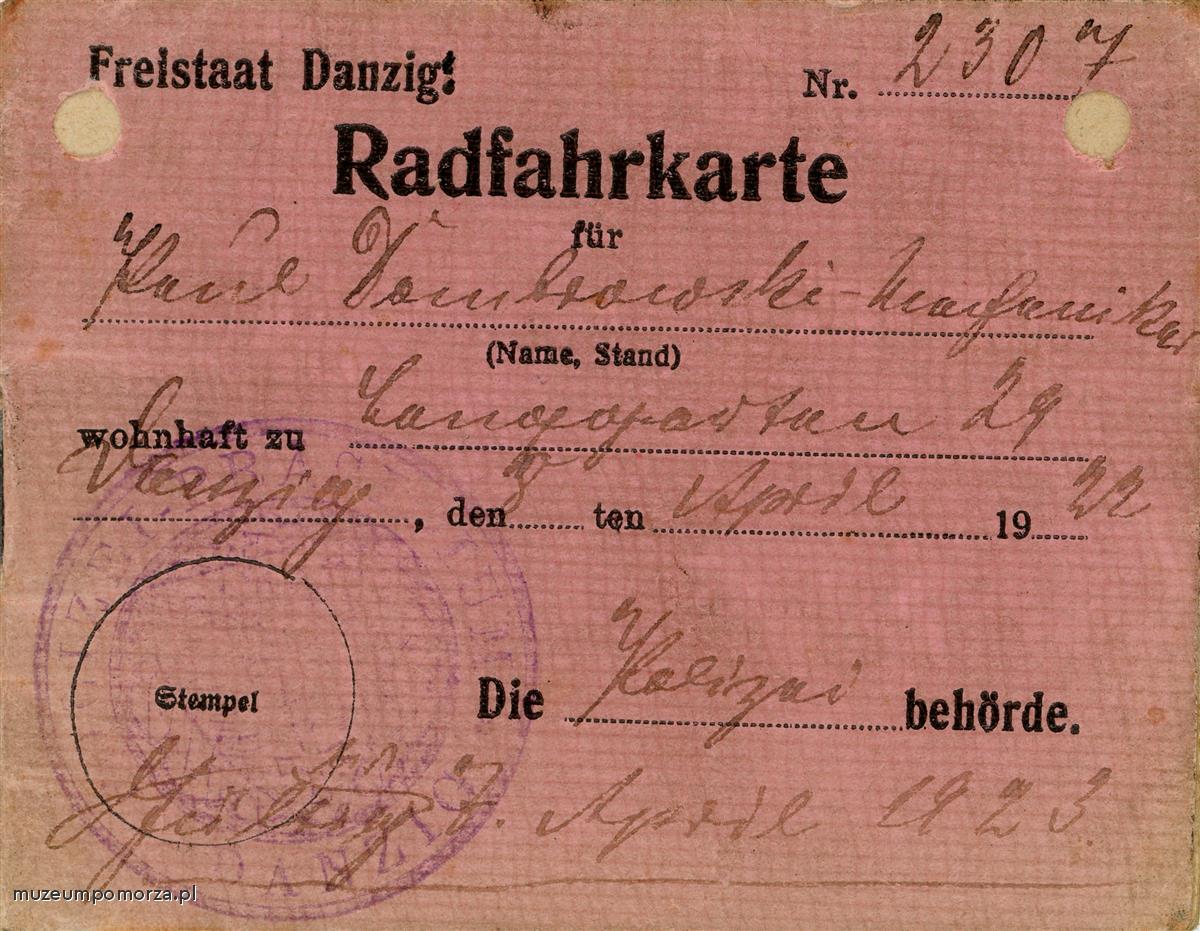 Freistaat Danzig!
Nr. 2307
Radfahrkarte
für
Paul Dombrowski - Mechaniker
(Name, Stand)
wohnhaft zu Langgarten 29
Danzig, den 3 ten April 1922
Stempel
Die Polizei behörde.
Gültig bis 3. April 1923
DANZIG
muzeumpomorza.pl